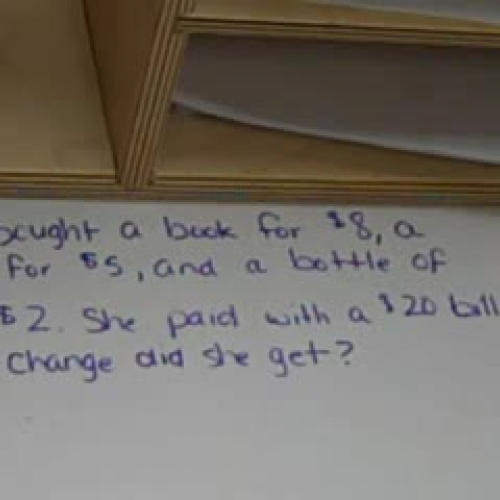 bought a book for $8, a
for $5, and a bottle of
$2. She paid with a $20 bill
change did she get?